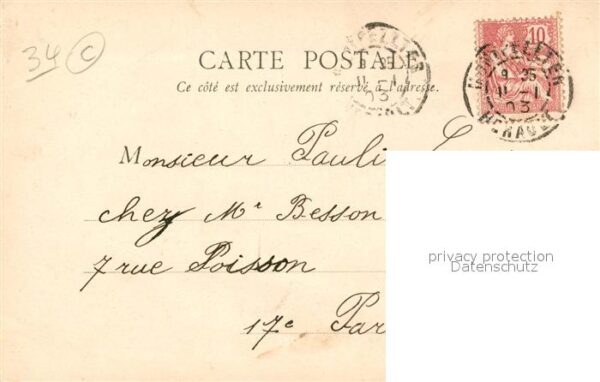 34 C
CARTE POSTALE
Ce côté est exclusivement réservé à l'adresse.
10
MONTPELLIER
9 35
11 - 1
03
HERAULT
Monsieur Pauli
chez Mr Besson
7 rue Poisson
17e Par
privacy protection
Datenschutz